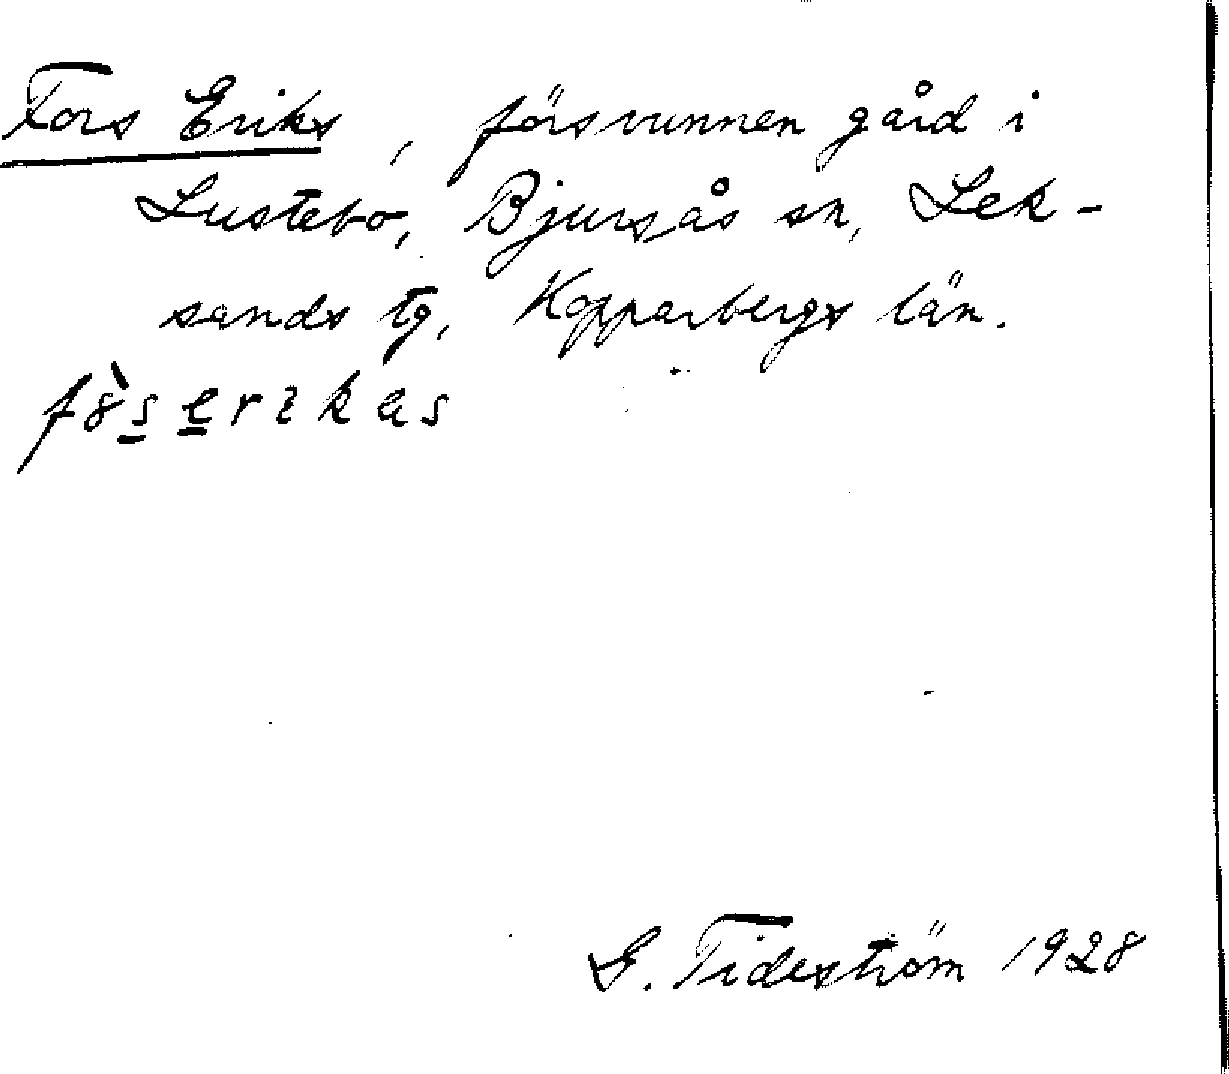 Fors Eriks, försvunnen gård i
Lustebo, Bjursås sn, Lek-
sands tg, Kopparbergs län.
G. Tideström 1928